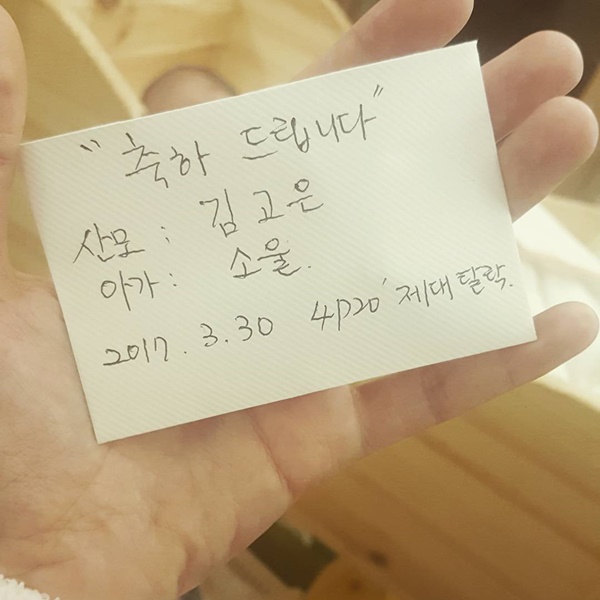 "축하 드립니다"
산모 : 김고은
아가 : 소울.
2017. 3. 30 4P20' 제대탈락.